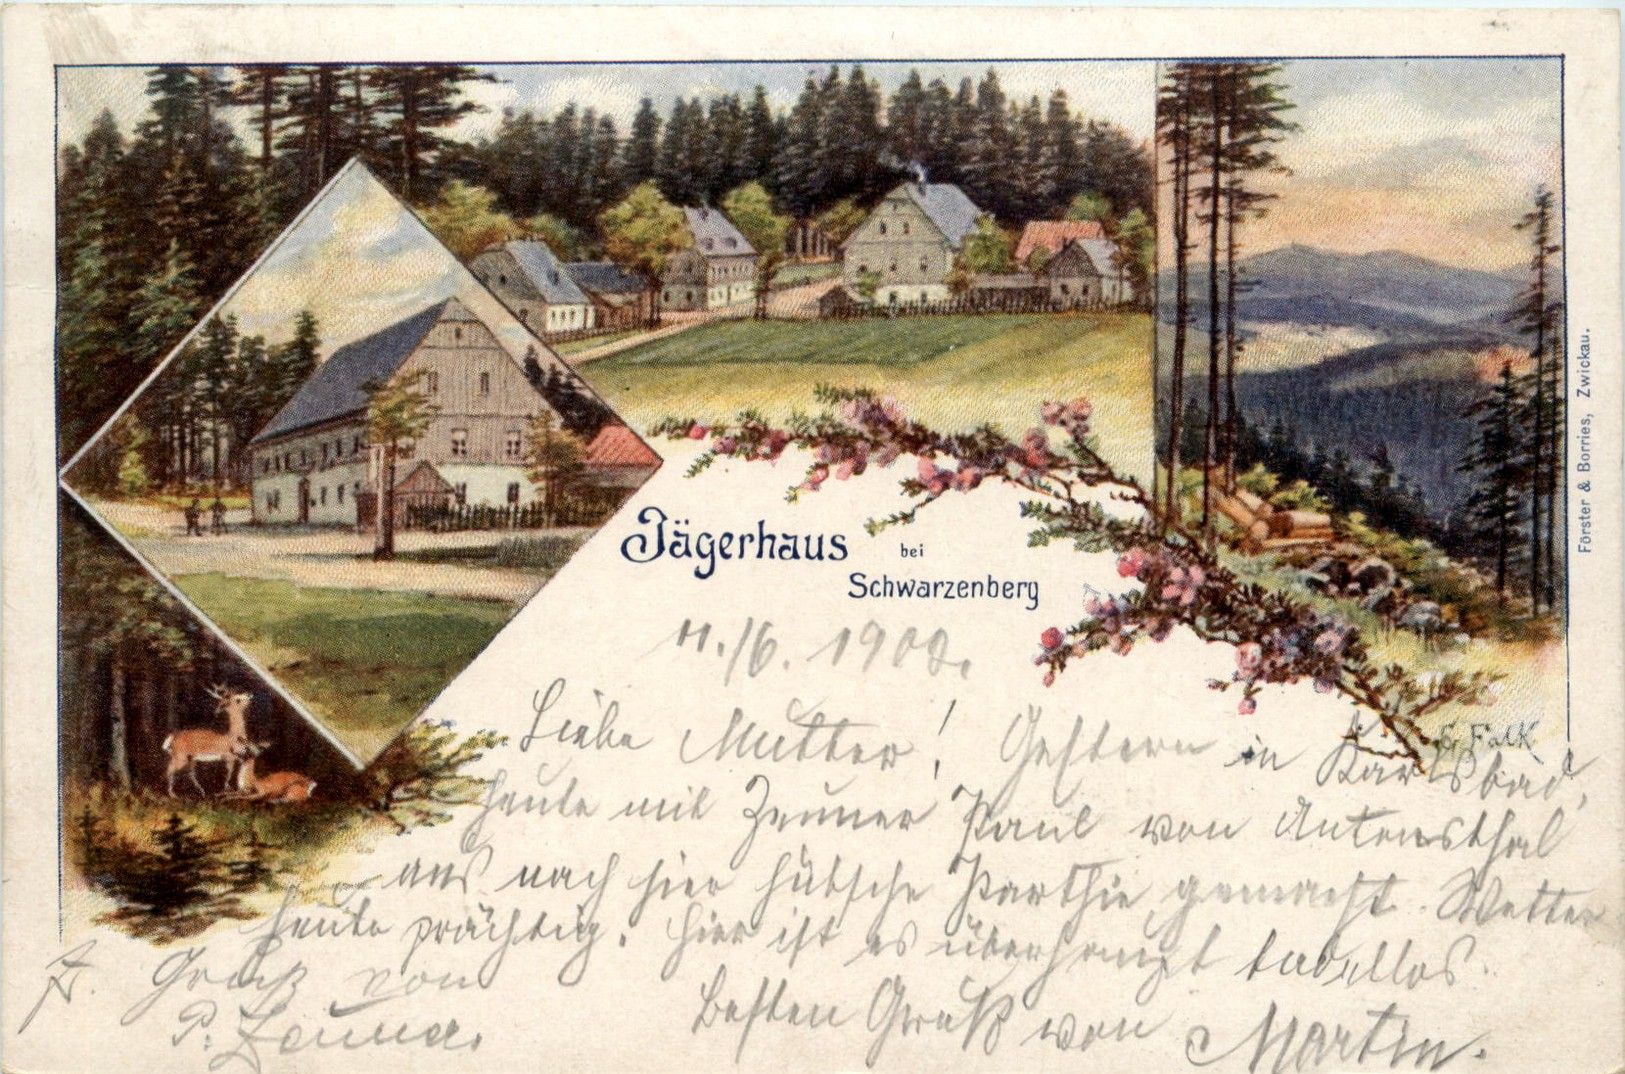 Jägerhaus bei
Schwarzenberg
Förster & Borries, Zwickau.
E. Falk
11./6. 1900.
Liebe Mutter! Gestern in Karlsbad,
heute mit Zeuner Paul von Antonsthal
aus nach hier hübsche Parthie gemacht. Wetter
heute prächtig. Hier ist es überhaupt tadellos.
Besten Gruß von Martin.
Gruß von
P. Zeuner.